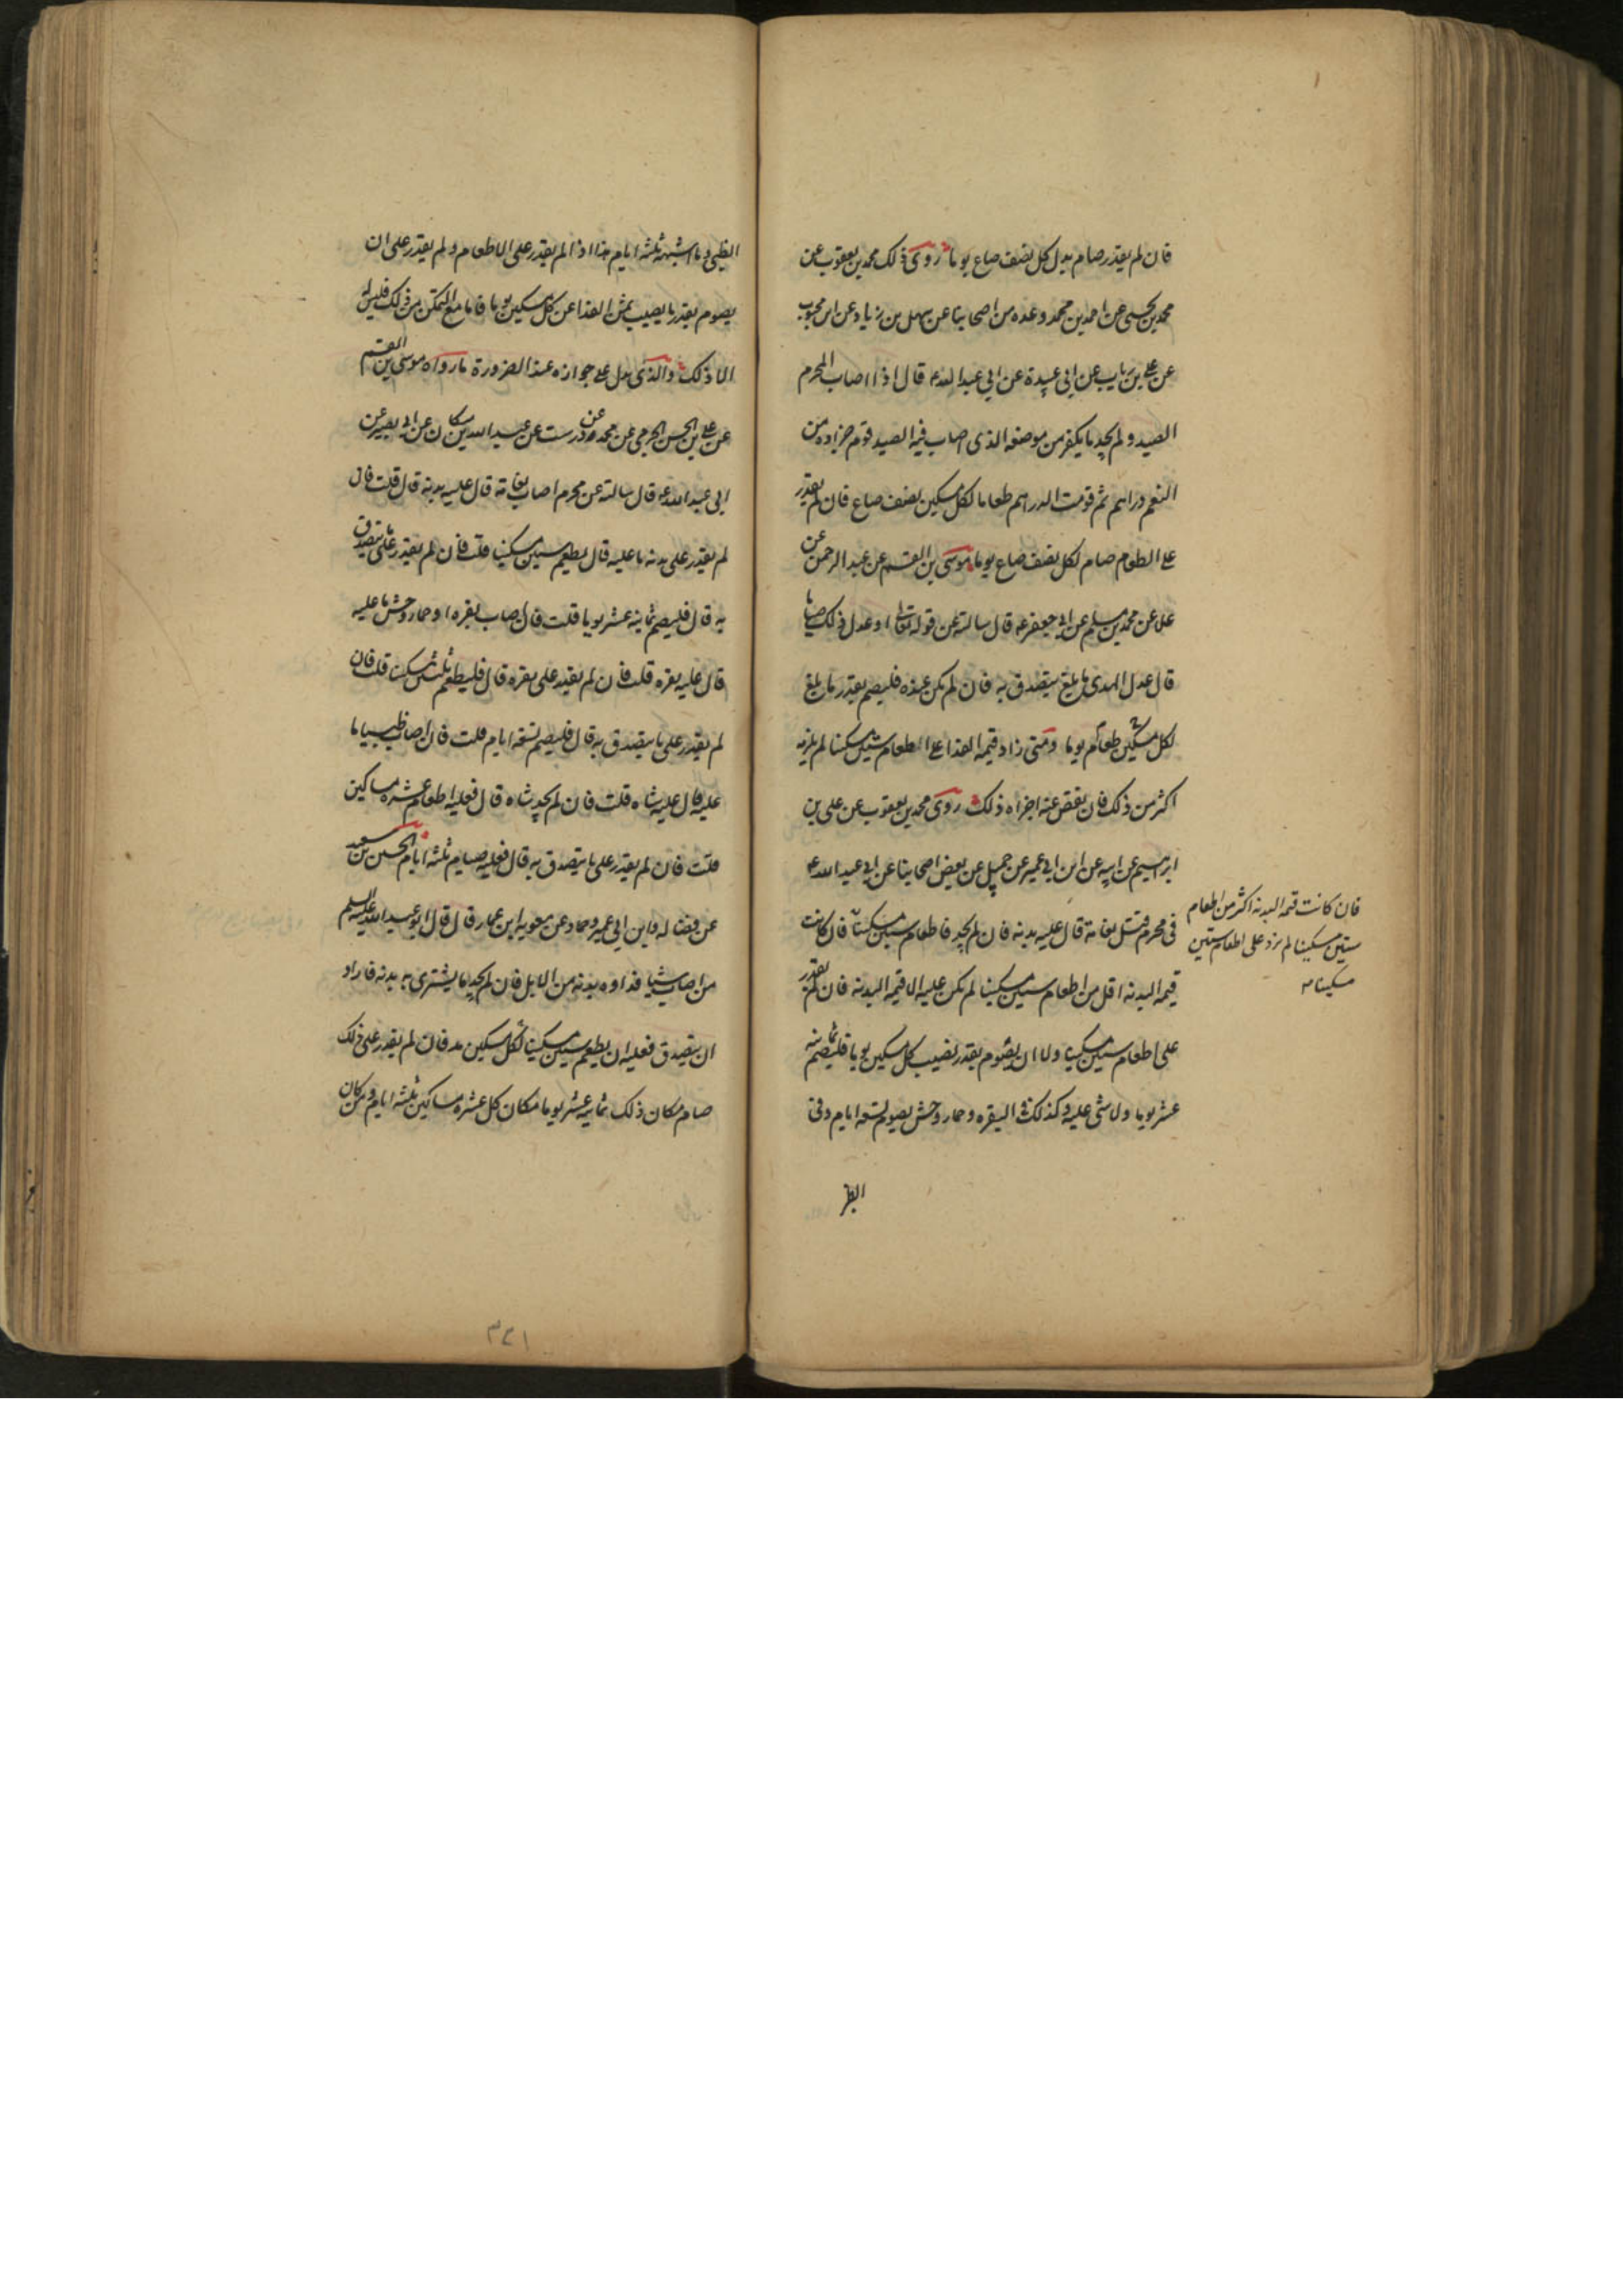 فان لم يقدر صام بدل كل نصف صاع يوما روى ذلك محمد بن يعقوب عن
محمد بن يحيى عن احمد بن محمد وعده من اصحابنا عن سهل بن زياد عن ابن محبوب
عن على بن رياب عن ابى عبيدة عن ابى عبد الله ع قال اذا اصاب المحرم
الصيد ولم يجد ما يكفر من موضعه الذى اصاب فيه الصيد قوم جزاوه من
النعم دراهم ثم قومت الدراهم طعاما لكل مسكين نصف صاع فان لم يقدر
على الطعام صام لكل نصف صاع يوما موسى بن القسم عن عبد الرحمن عن
علا عن محمد بن مسلم عن ابى جعفر ع قال سالته عن قوله تعالى او عدل ذلك صياما
قال عدل الهدى ما بلغ يتصدق به فان لم يكن عنده فليصم بقدر ما بلغ
لكل مسكين طعام يوما ومتى زاد قيمه الفدا على الطعام ستين مسكينا لم يلزمه
اكثر من ذلك فان نقص عنه اجزاه ذلك روى محمد بن يعقوب عن على بن
ابراهيم عن ابيه عن ابن ابى عمير عن جميل عن بعض اصحابنا عن ابى عبد الله ع
فى محرم قتل نعامة قال عليه بدنه فان لم يجد فاطعام ستين مسكينا فان كانت
قيمه البدنه اقل من اطعام ستين مسكينا لم يكن عليه الا قيمه البدنه فان لم يقدر
على اطعام ستين مسكينا ولا ان يصوم بقدر نصيب كل مسكين يوما فليصم ثمانيه
عشر يوما ولا شى عليه وكذلك فى البقره وحمار وحش يصوم تسعه ايام وفى
الظبى
فان كانت قيمه البدنه اكثر من اطعام
ستين مسكينا لم يزد على اطعام ستين
مسكينا
الظبى وما اشبهه ثلثه ايام هذا اذا لم يقدر على الاطعام ولم يقدر على ان
يصوم بقدر ما يصيب ثمن الفدا عن كل مسكين يوما فاما مع التمكن من ذلك فليس له
الا ذلك والذى يدل على جوازه عند الضرورة ما رواه موسى بن القسم
عن على بن الحسن الجرمى عن محمد عن درست عن عبد الله بن مسكان عن ابى بصير عن
ابى عبد الله ع قال سالته عن محرم اصاب نعامة قال عليه بدنة قال قلت فان
لم يقدر على بدنه ما عليه قال يطعم ستين مسكينا قلت فان لم يقدر على ما يتصدق
به قال فليصم ثمانيه عشر يوما قلت فان اصاب بقره او حمار وحش ما عليه
قال عليه بقره قلت فان لم يقدر على بقره قال فليطعم ثلثين مسكينا قلت فان
لم يقدر على ما يتصدق به قال فليصم تسعه ايام قلت فان اصاب ظبيا ما
عليه قال عليه شاه قلت فان لم يجد شاه قال فعليه اطعام عشره مساكين
قلت فان لم يقدر على ما يتصدق به قال فعليه صيام ثلثه ايام الحسين بن سعيد
عن فضاله وابن ابى عمير وحماد عن معويه ابن عمار قال قال ابو عبد الله عليه السلم
من اصاب شيا فداوه بدنه من الابل فان لم يجد ما يشترى به بدنه فاراد
ان يتصدق فعليه ان يطعم ستين مسكينا لكل مسكين مد فان لم يقدر على ذلك
صام مكان ذلك ثمانيه عشر يوما مكان كل عشره مساكين ثلثه ايام ومن كان